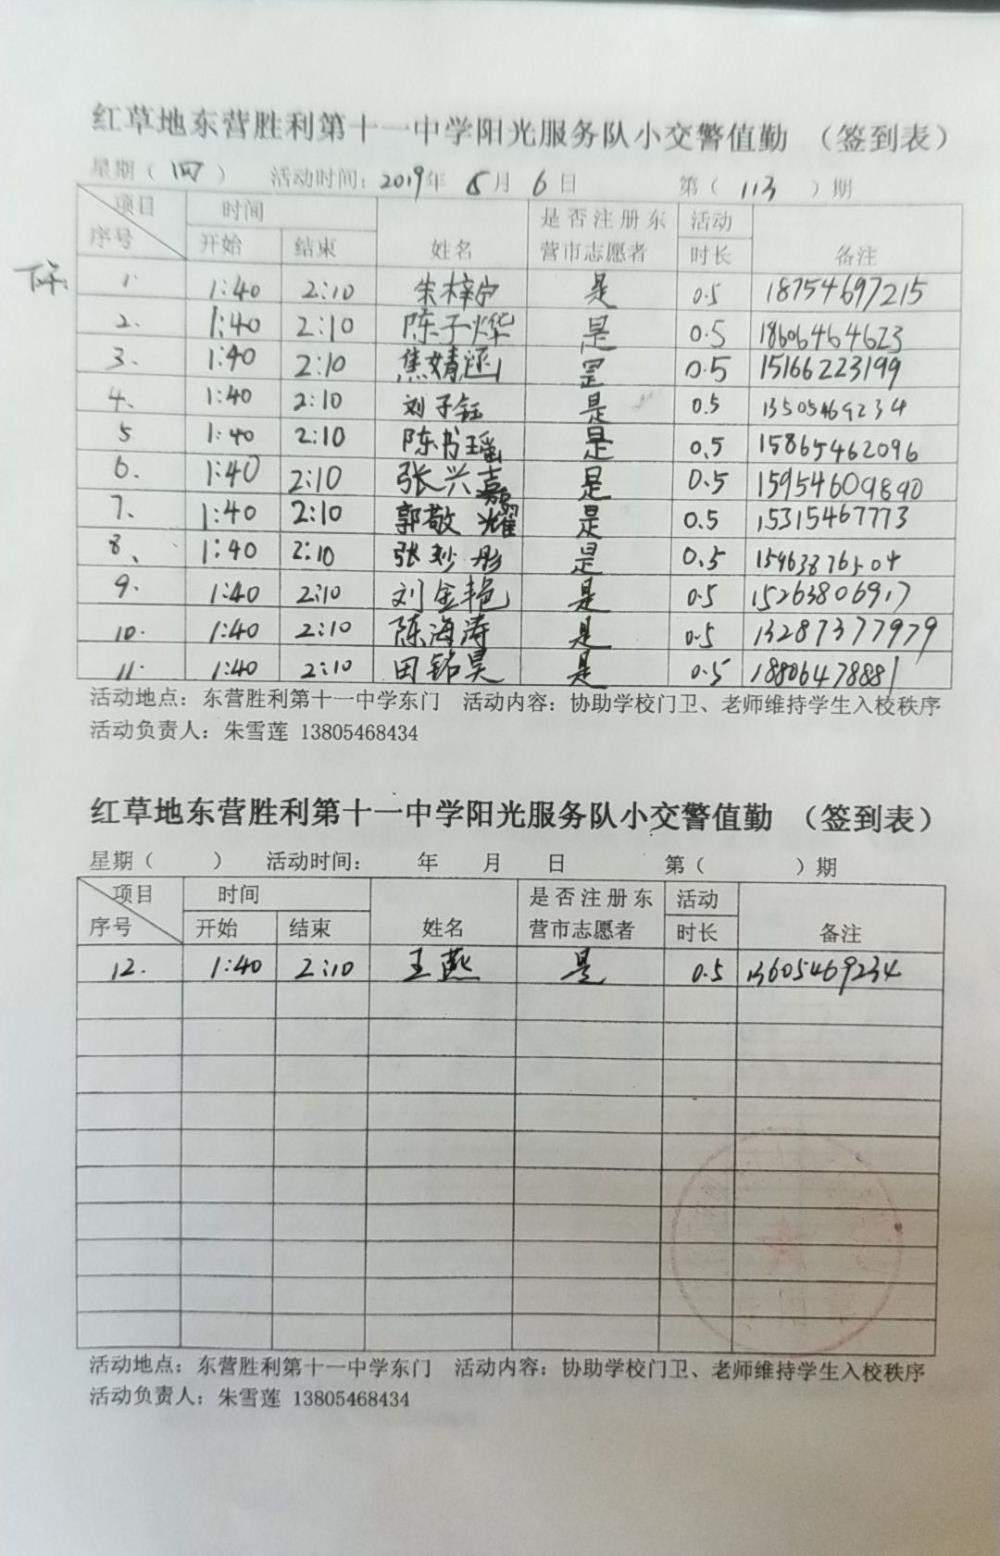 红草地东营胜利第十一中学阳光服务队小交警值勤 （签到表）
星期（ 四 ） 活动时间：2019年 6月 6日 第（ 113 ）期
项目 时间 是否注册东 活动
序号 开始 结束 姓名 营市志愿者 时长 备注
下午:
1. 1:40 2:10 朱梓宁 是 0.5 18754697215
2. 1:40 2:10 陈子烨 是 0.5 18606464623
3. 1:40 2:10 焦婧涵 是 0.5 15166223199
4. 1:40 2:10 刘子钰 是 0.5 13505469234
5 1:40 2:10 陈书瑶 是 0.5 15865462096
6. 1:40 2:10 张兴嘉 是 0.5 15954609890
7. 1:40 2:10 郭敬耀 是 0.5 15315467773
8、 1:40 2:10 张妙彤 是 0.5
9. 1:40 2:10 刘金艳 是 0.5 15263806917
10. 1:40 2:10 陈海涛 是 0.5 13287377979
11. 1:40 2:10 田铭昊 是 0.5 18806478881
活动地点：东营胜利第十一中学东门 活动内容：协助学校门卫、老师维持学生入校秩序
活动负责人：朱雪莲 13805468434
红草地东营胜利第十一中学阳光服务队小交警值勤 （签到表）
星期（ ） 活动时间： 年 月 日 第（ ）期
项目 时间 是否注册东 活动
序号 开始 结束 姓名 营市志愿者 时长 备注
12. 1:40 2:10 王燕 是 0.5 13605469234
活动地点：东营胜利第十一中学东门 活动内容：协助学校门卫、老师维持学生入校秩序
活动负责人：朱雪莲 13805468434